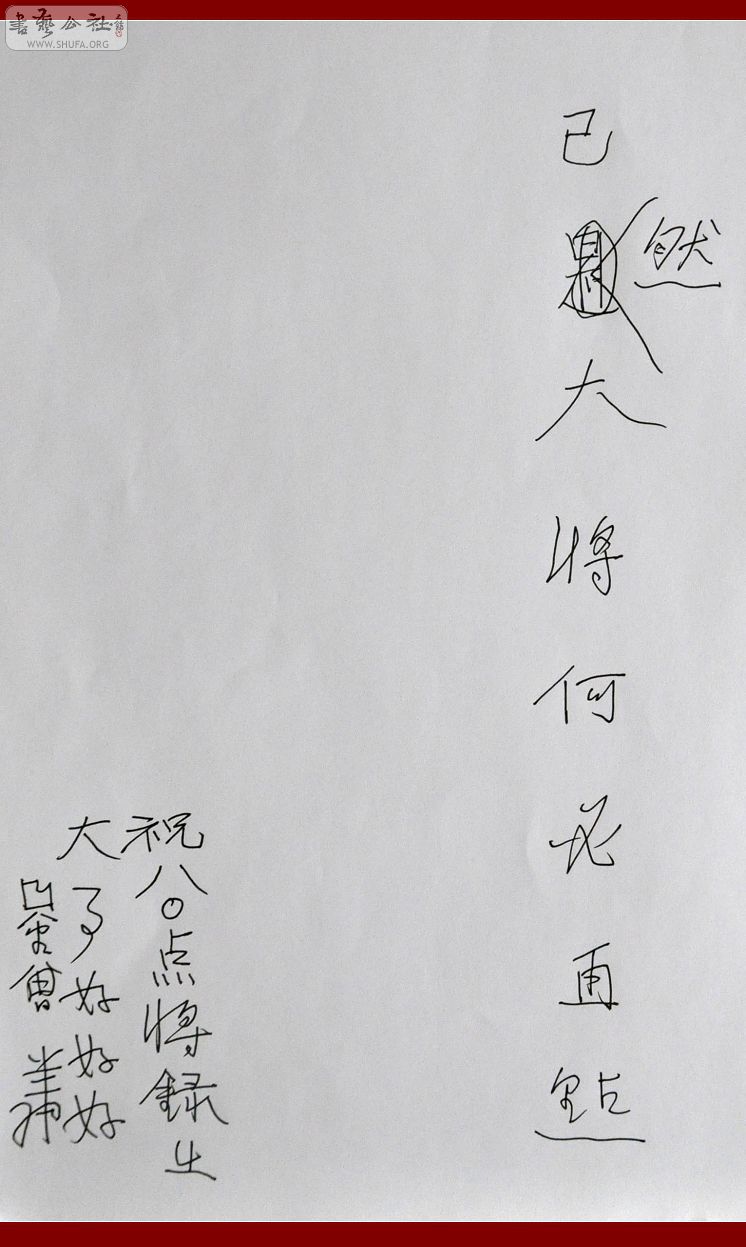 書藝公社
WWW.SHUFA.ORG
已然大將何必再點
祝八〇点將録上
大了好好好